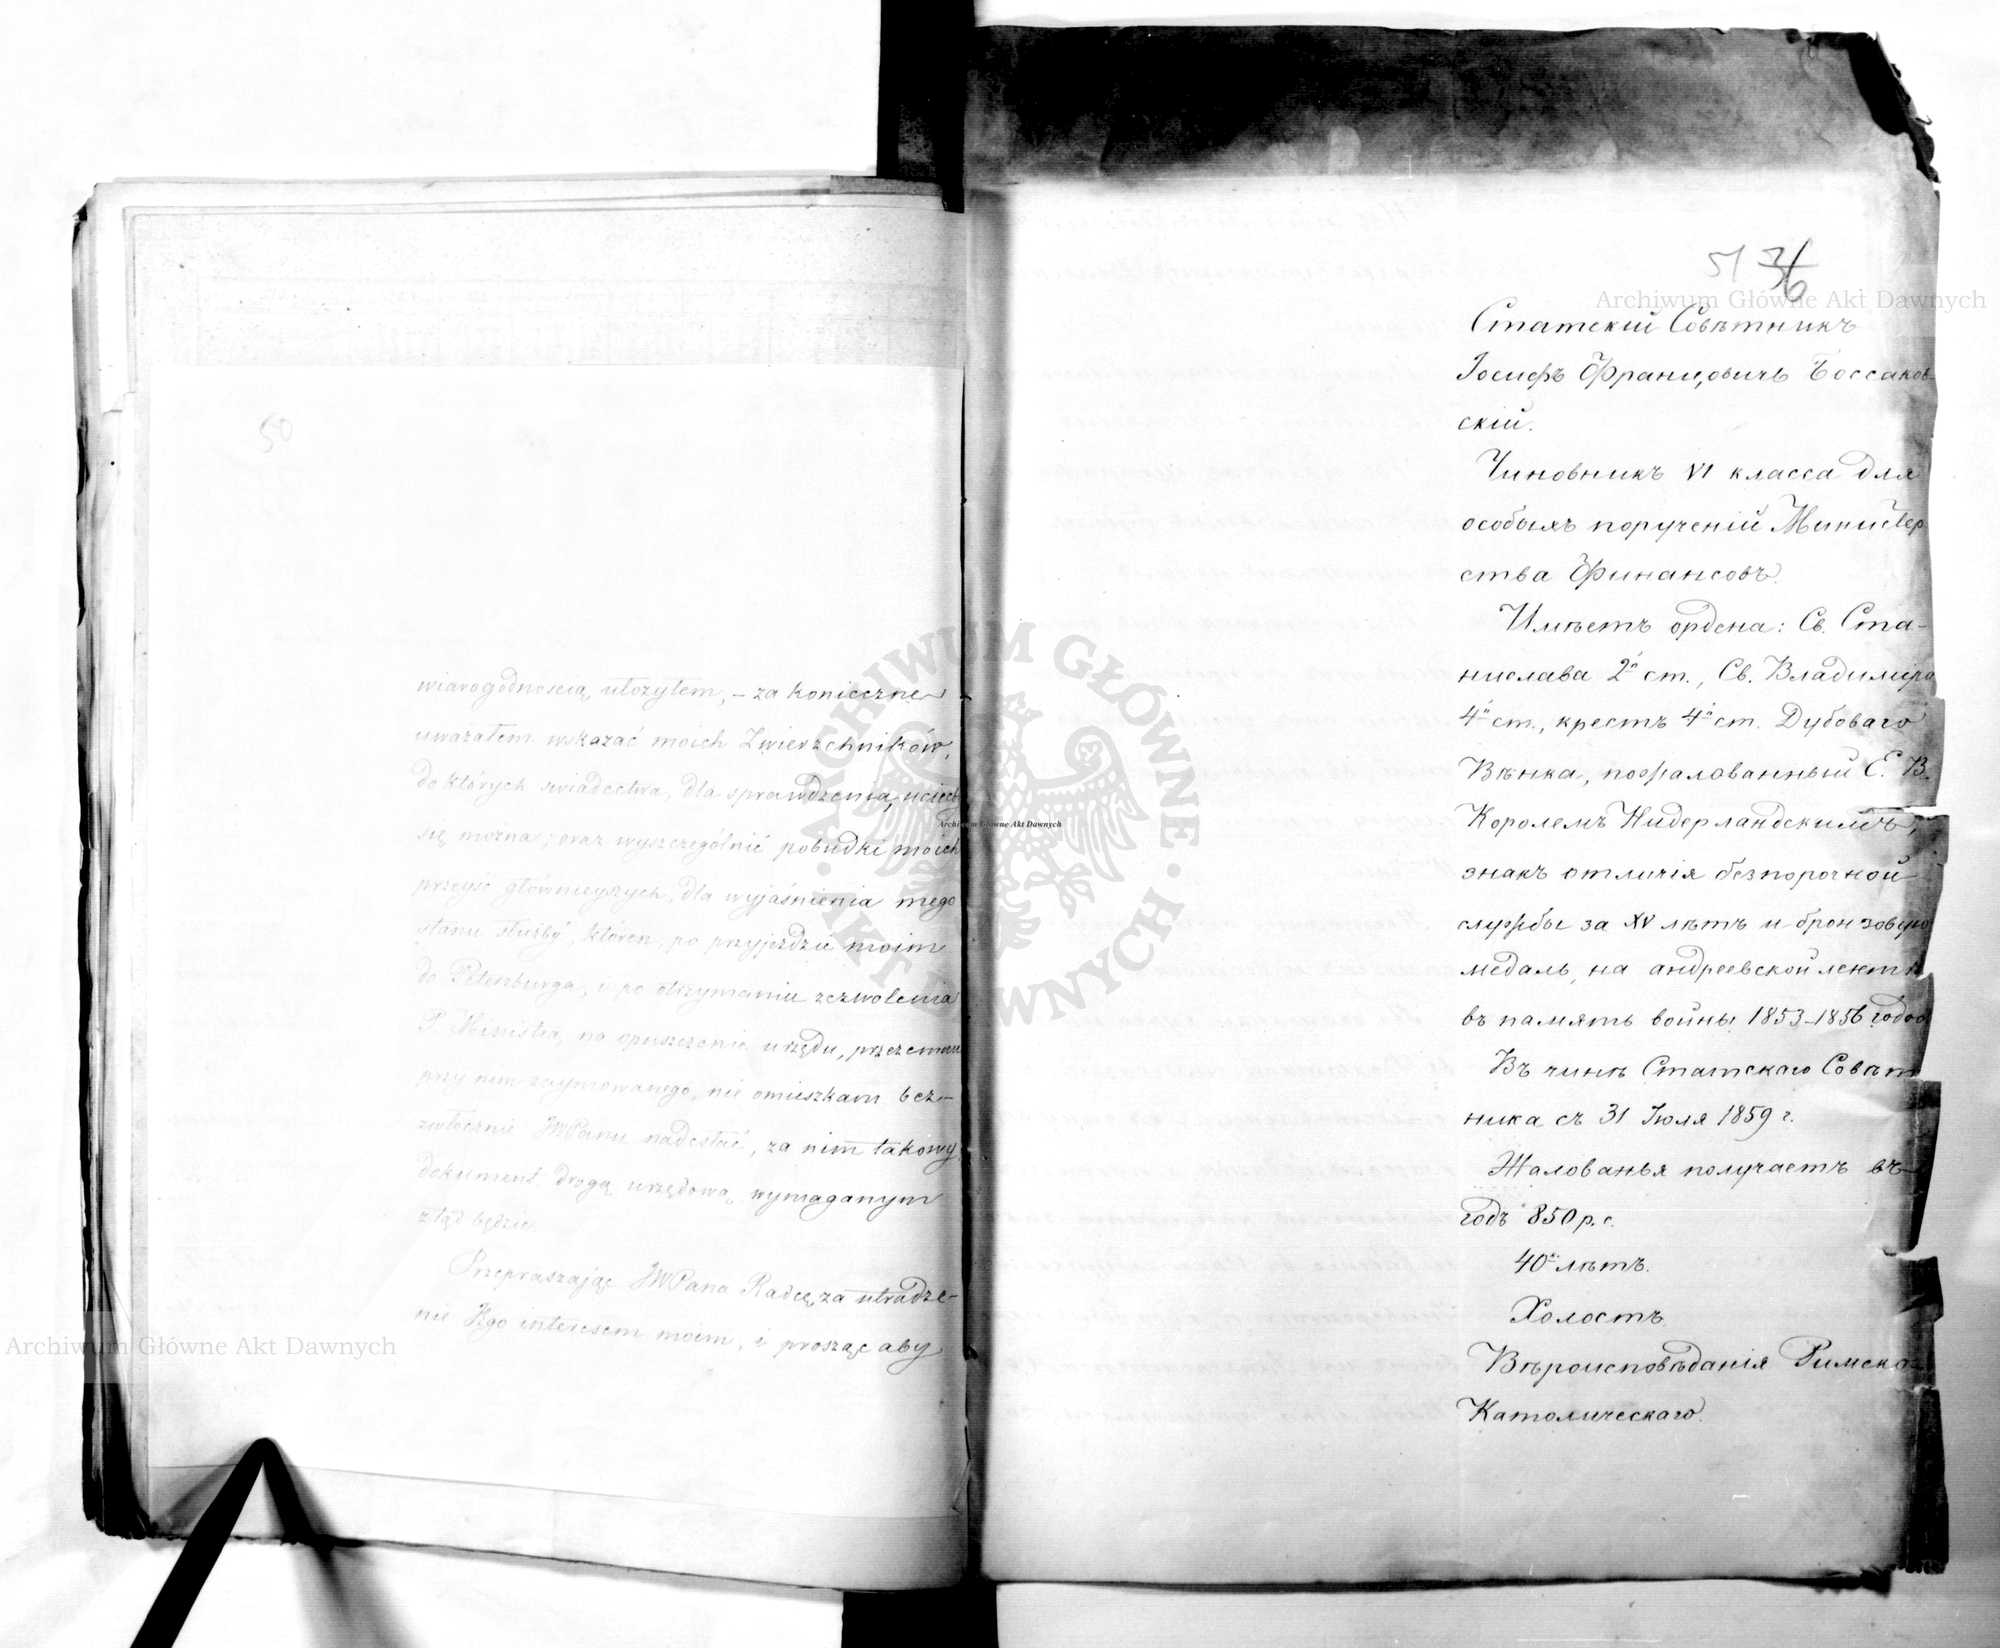 50
wiarogodnością ułożyłem, – za konieczne
uważałem wskazać moich Zwierzchników,
do których świadectwa, dla sprawdzenia, uciec
się można; oraz wyszczególnić pobudki moich
przejść główniejszych, dla wyjaśnienia mego
stanu służby, któren, po przyjeździe moim
do Petersburga, i po otrzymaniu zezwolenia
P. Ministra, na opuszczenie urzędu, przezemnie
przy nim zaymowanego, nie omieszkam bez-
zwłocznie JWPanu nadesłać, za nim takowy
dokument drogą urzędową, wymaganym
ztąd będzie.
Przepraszając JWPana Radcę, za utrudze-
nie Jgo interesem moim, i prosząc aby
51 36
Статскій Совѣтникъ
Іосифъ Францовичъ Боссаков-
скій.
Чиновникъ VI класса для
особыхъ порученій Министер
ства Финансовъ.
Имѣетъ ордена: Св. Ста-
нислава 2й ст., Св. Владиміра
4й ст., крестъ 4й ст. Дубоваго
Вѣнка, пожалованный Е. В.
Королемъ Нидерландскимъ,
знакъ отличія безпорочной
службы за XV лѣтъ и бронзовую
медаль, на андреевской лентѣ
въ память войны 1853–1856 годов
Въ чинѣ Статскаго Совѣт
ника съ 31 Іюля 1859 г.
Жалованья получаетъ въ
годъ 850 р. с.
40 лѣтъ.
Холостъ.
Вѣроисповѣданія Римско-
Католическаго.
Archiwum Główne Akt Dawnych
Archiwum Główne Akt Dawnych
Archiwum Główne Akt Dawnych
ARCHIWUM GŁÓWNE · AKT DAWNYCH ·